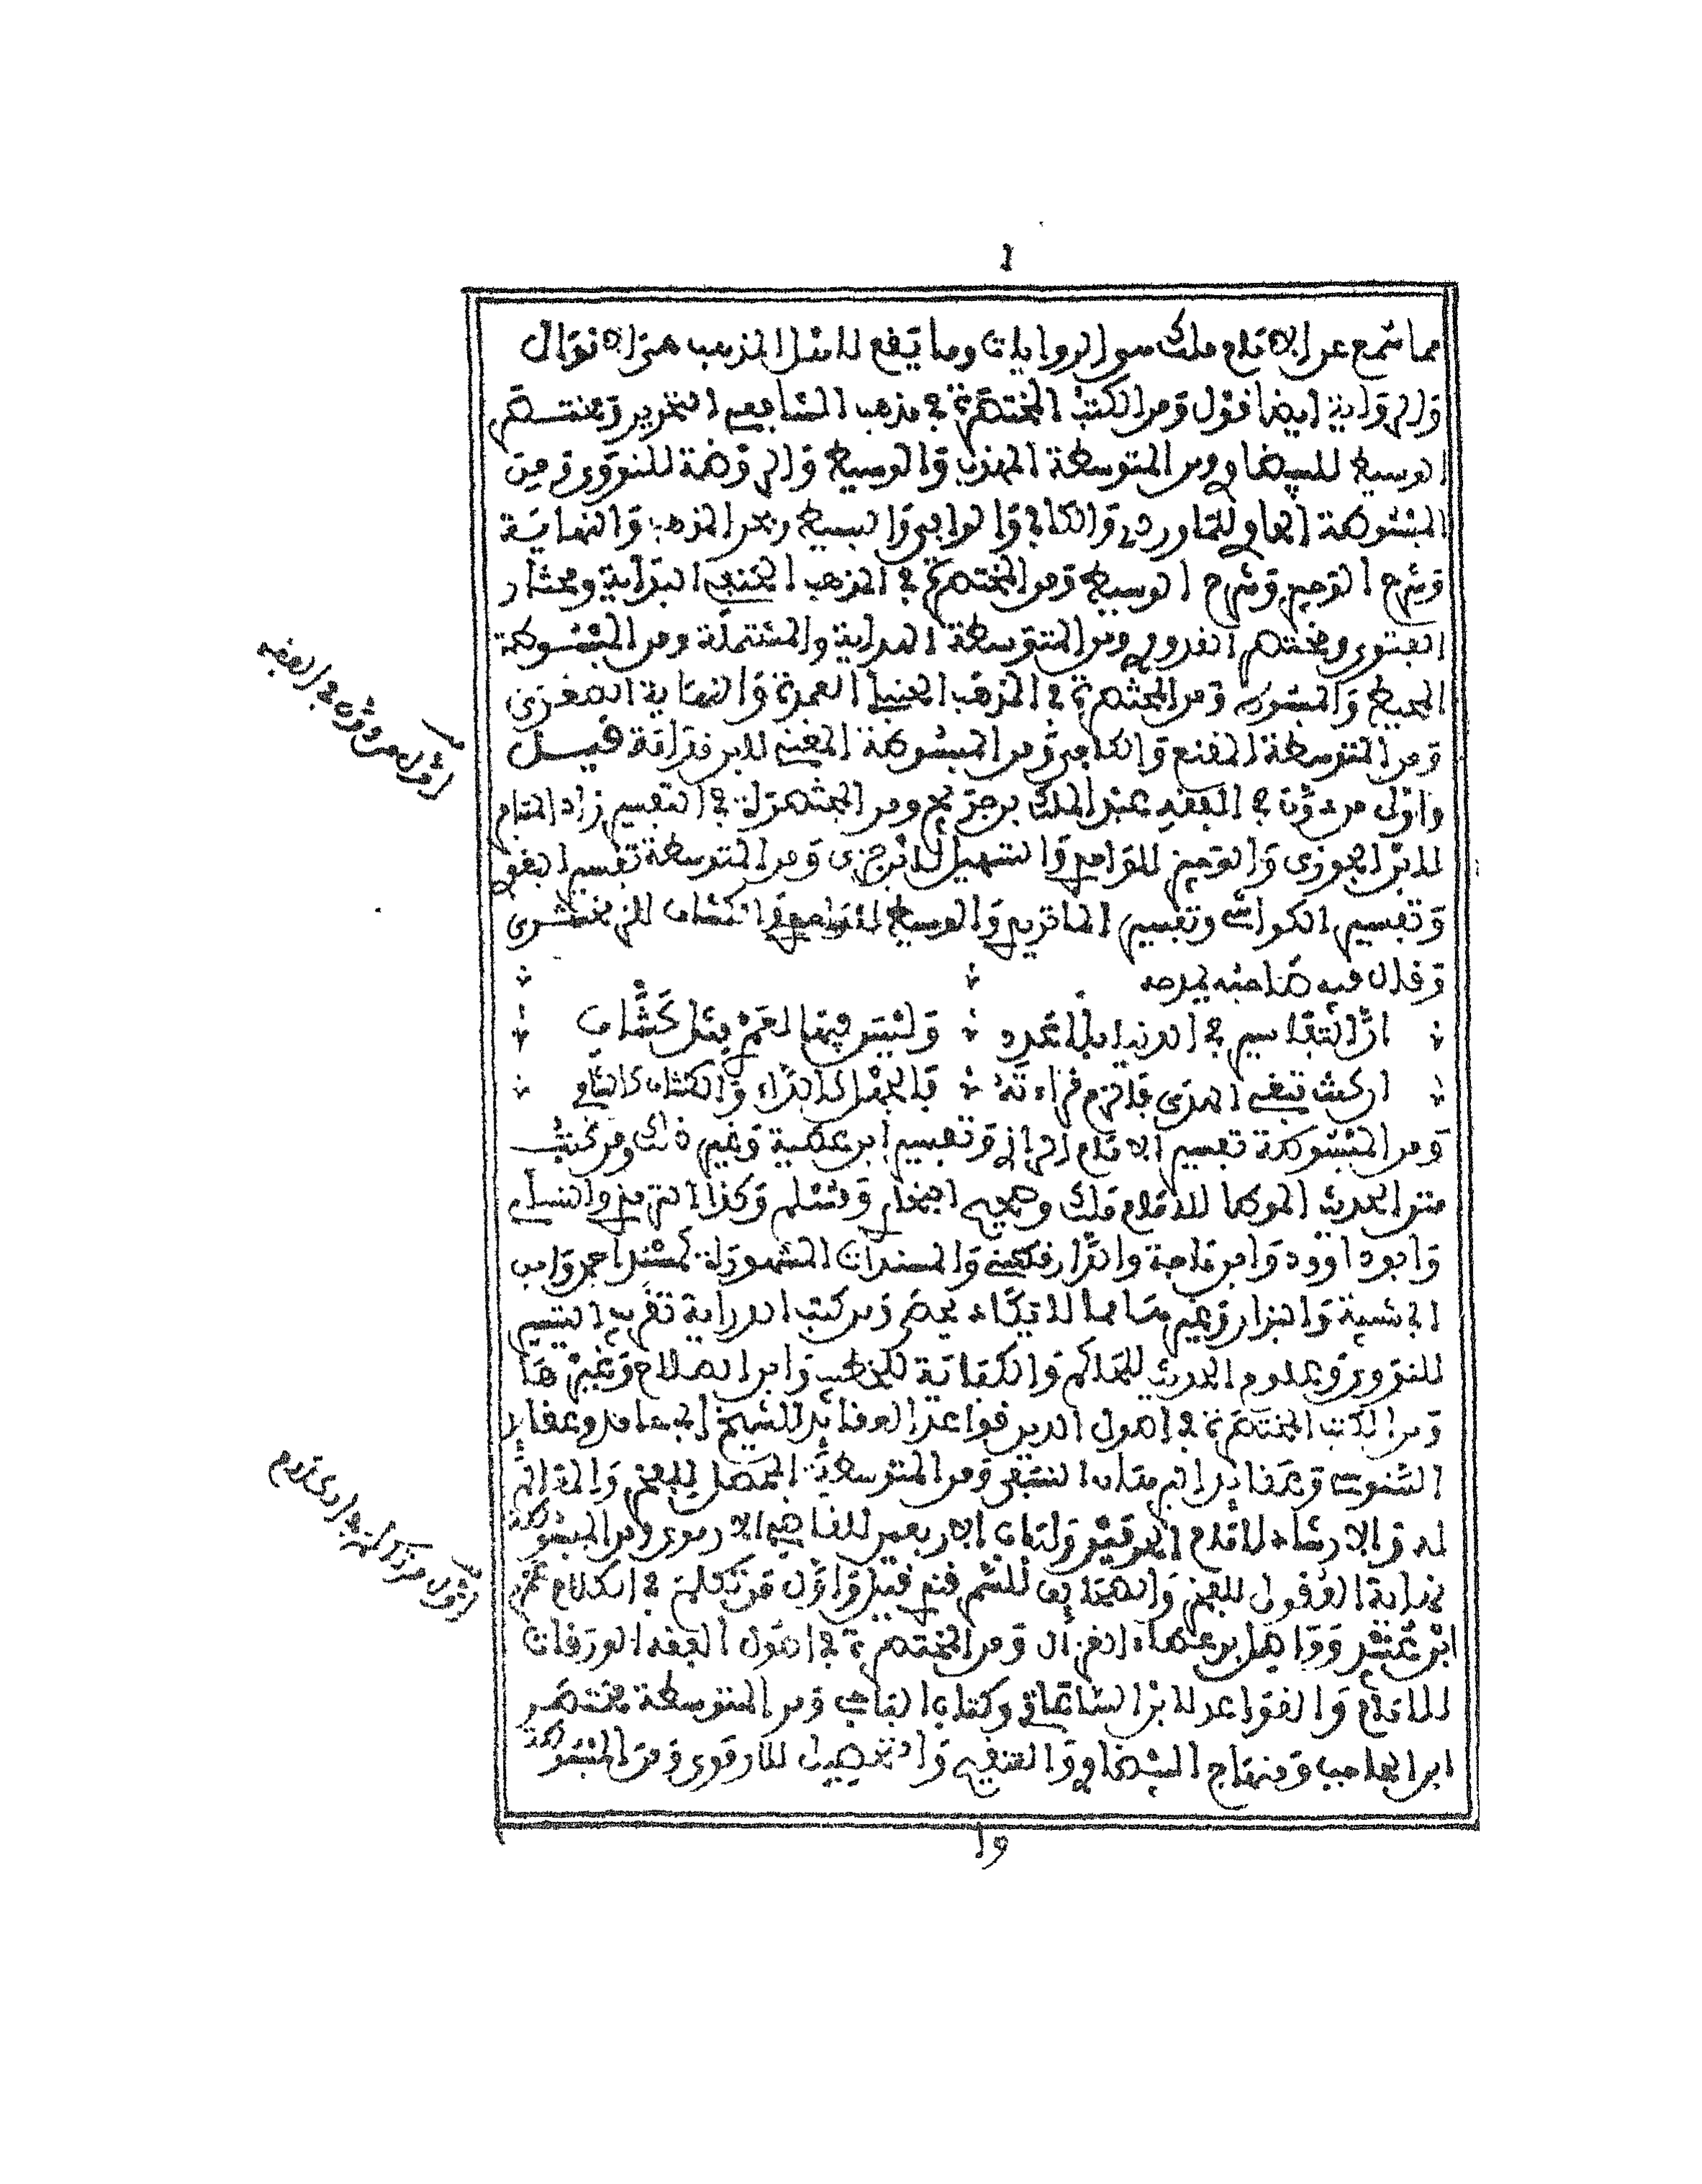 مما سمع عن الإمام ملك من الروايات وما يقع لأهل المذهب هي الأقوال
والرواية أيضا قول ومن الكتب المختصرة في مذهب الشافعي التحرير ومختصر
الوسيط للبيضاوي ومن المتوسطة المهذب والوسيط والروضة للنووي ومن
المبسوطة الحاوي للماوردي والكافي والوافي والبسيط وبحر المذهب والنهاية
وشرح الوجيز وشرح الوسيط ومن المختصرة في المذهب الحنفي البداية ومختار
الفتوى ومختصر القدوري ومن المتوسطة الهداية والمشتملة ومن المبسوطة
المحيط والمبسوط ومن المختصرة في المذهب الحنبلي العمدة والنهاية الصغرى
ومن المتوسطة المقنع والكافي ومن المبسوطة المغني لابن قدامة قيل
وأول من دون في الفقه عبد الملك بن جريج ومن المختصرات في التفسير زاد المسير
لابن الجوزي والوجيز للواحدي والتسهيل لابن جزي ومن المتوسطة تفسير البغوي
وتفسير الكواشي وتفسير الماتريدي والوسيط للواحدي والكشاف للزمخشري
وقال فيه صاحبه يمدحه
إن التفاسير في الدنيا بلا عدد وليس فيها لعمري مثل كشاف
إن كنت تبغي الهدى فالزم قراءته فالجهل كالداء والكشاف كالشافي
ومن المبسوطة تفسير الإمام الرازي وتفسير ابن عطية وغير ذلك ومن كتب
متن الحديث الموطأ للإمام ملك وصحيح البخاري ومسلم وكذا الترمذي والنسائي
وأبو داوود وابن ماجة والدارقطني والمسندات المشهورة كمسند أحمد وابن
أبي شيبة والبزار وغير هما مما لا يكاد يحصى ومن كتب الدراية تقريب التيسير
للنووي وعلوم الحديث للحاكم والكفاية للخطيب وابن الصلاح وغيرها
ومن الكتب المختصرة في أصول الدين قواعد العقائد للشيخ أبي حامد وعقائد
السنوسي وعقائد النسفي ومن المتوسطة المحصل للفخر
له والإرشاد لإمام الحرمين ولباب الأربعين للقاضي الأرموي ومن المبسوطة
نهاية العقول للفخر والصحائف للسمرقندي قيل وأول من تكلم في الكلام عمرو
ابن عبيد وواصل بن عطاء الغزال ومن المختصرة في أصول الفقه الورقات
للإمام والقواعد لابن الساعاتي وكتاب ومن المتوسطة مختصر
ابن الحاجب ومنهاج البيضاوي والتنقيح والتحصيل للأرموي ومن المبسوطة
أول من دون في الفقه
أول من تكلم في الكلام